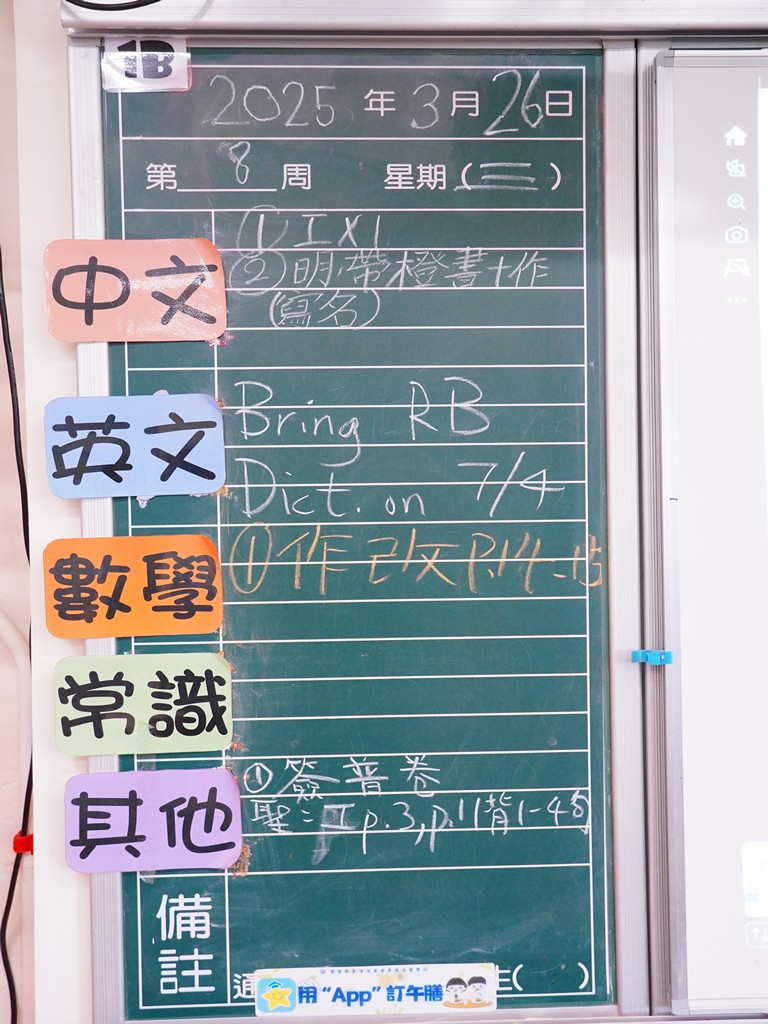 1B
2025 年 3 月 26 日
第 8 周 星期(三)
① 工 x 1
中文
② 明·帶橙書+作
(寫名)
英文
Bring RB
Dict. on 7/4
數學
① 作己改 P.14-15
常識
其他
① 簽普卷
聖:工 p.3, p.11背1-4句
備註
通
用 “App” 訂午膳
( )